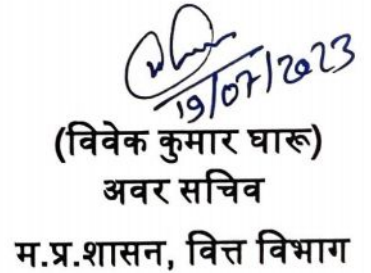 19/07/2023
(विवेक कुमार घारू)
अवर सचिव
म.प्र.शासन, वित्त विभाग